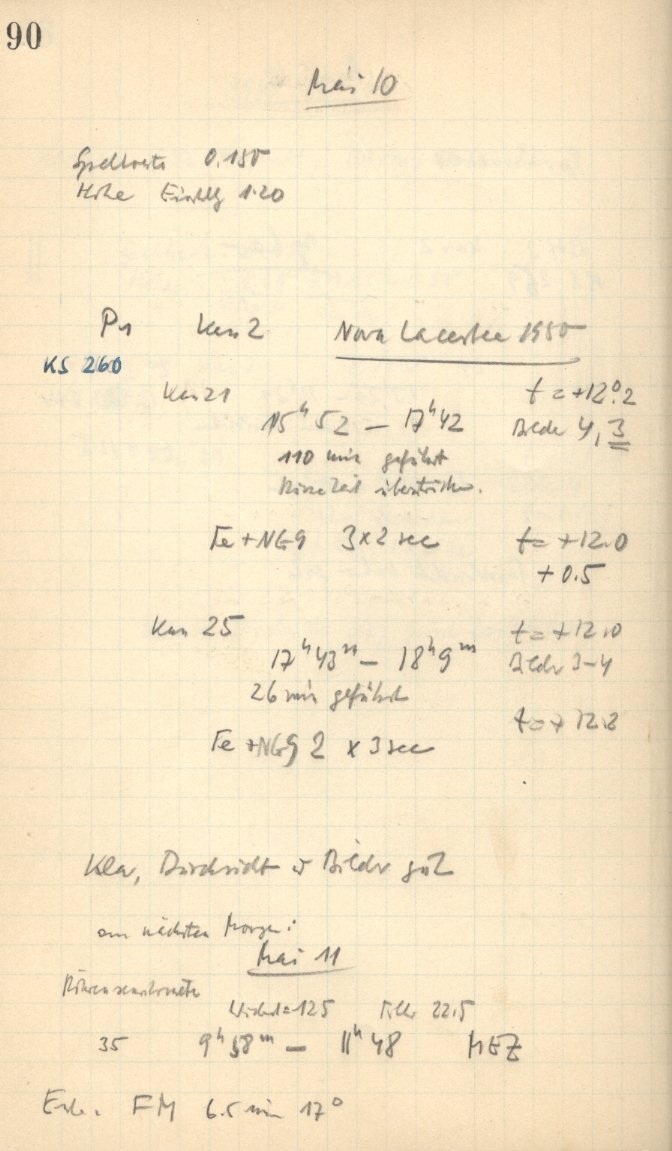 90
Mai 10
Spaltweite 0.150
Höhe Einstllg 1.20
Pr Kam 2 Nova Lacertae 1950
KS 260
Kas 21 t = +12°.2
15ʰ52 – 17ʰ42 Bilder 4, 3
110 min geführt
überstrichen.
Fe + NG9 3 x 2 sec t = +12.0
+ 0.5
Kas 25 t = +12.0
17ʰ43ᵐ – 18ʰ9ᵐ Bilder 3–4
26 min geführt
t = + 12.2
Fe + NG9 2 x 3 sec
Klar, Durchsicht u Bilder gut
am nächsten Morgen:
Mai 11
Röhrensensitometer
Widerst = 125 Filter 22.5
35 9ʰ58ᵐ – 11ʰ48 MEZ
Entw. FM 6.5 min 17°